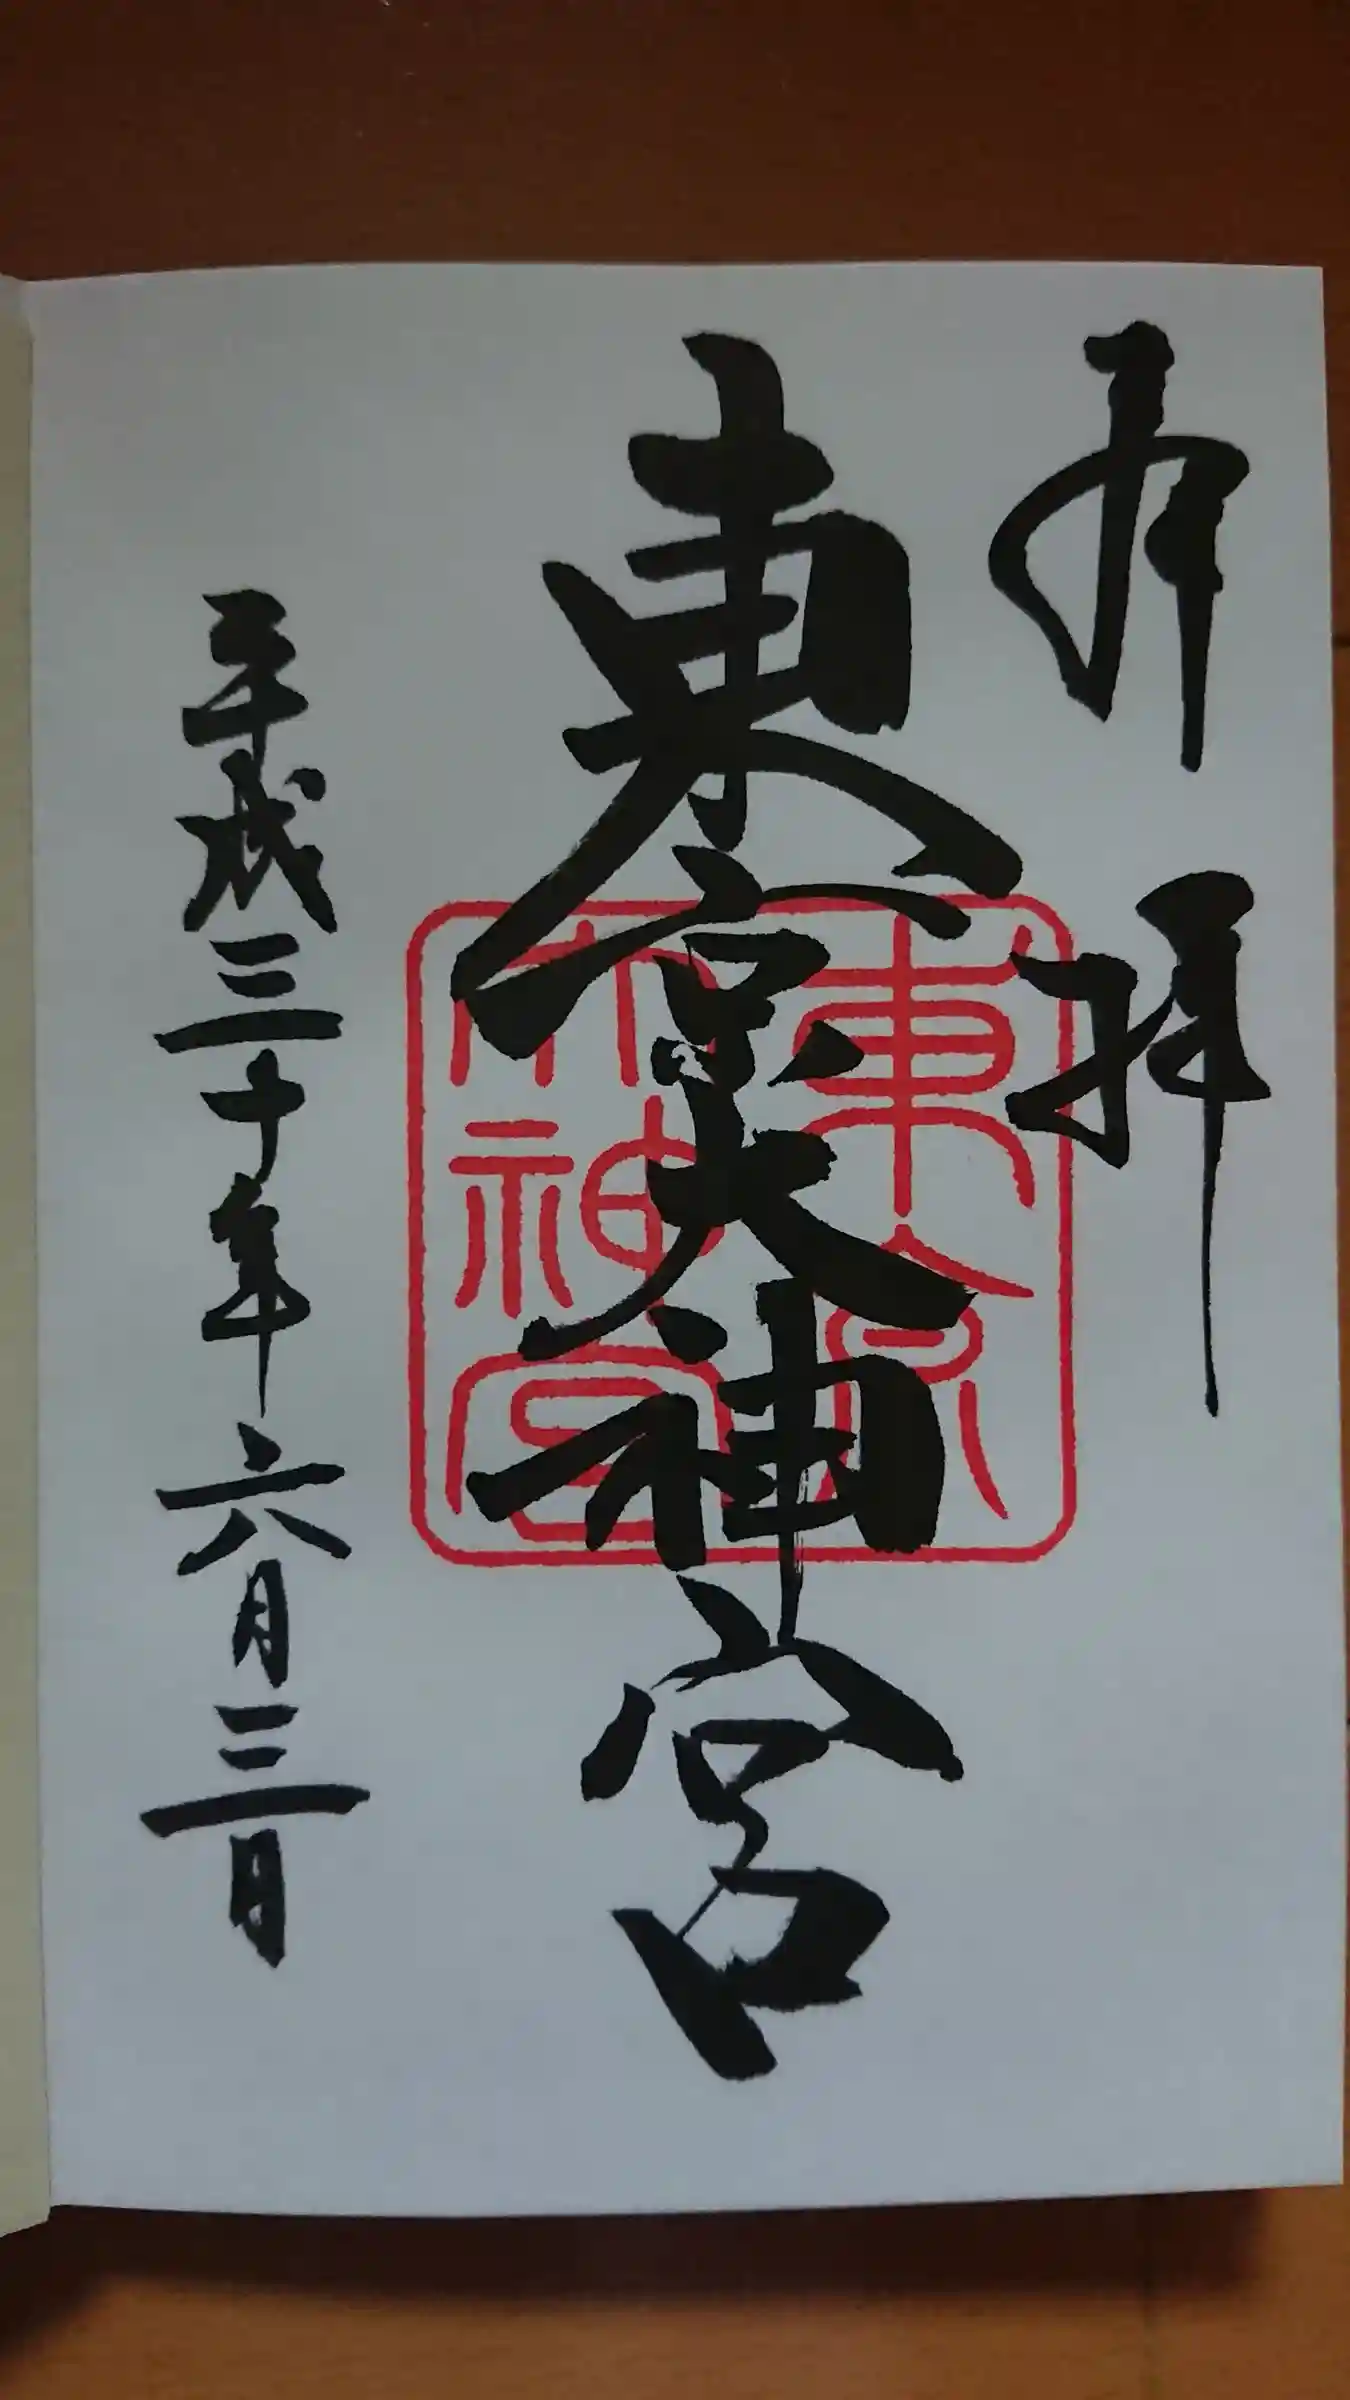 奉拝
東京大神宮
東京大神宮
平成三十年六月三日